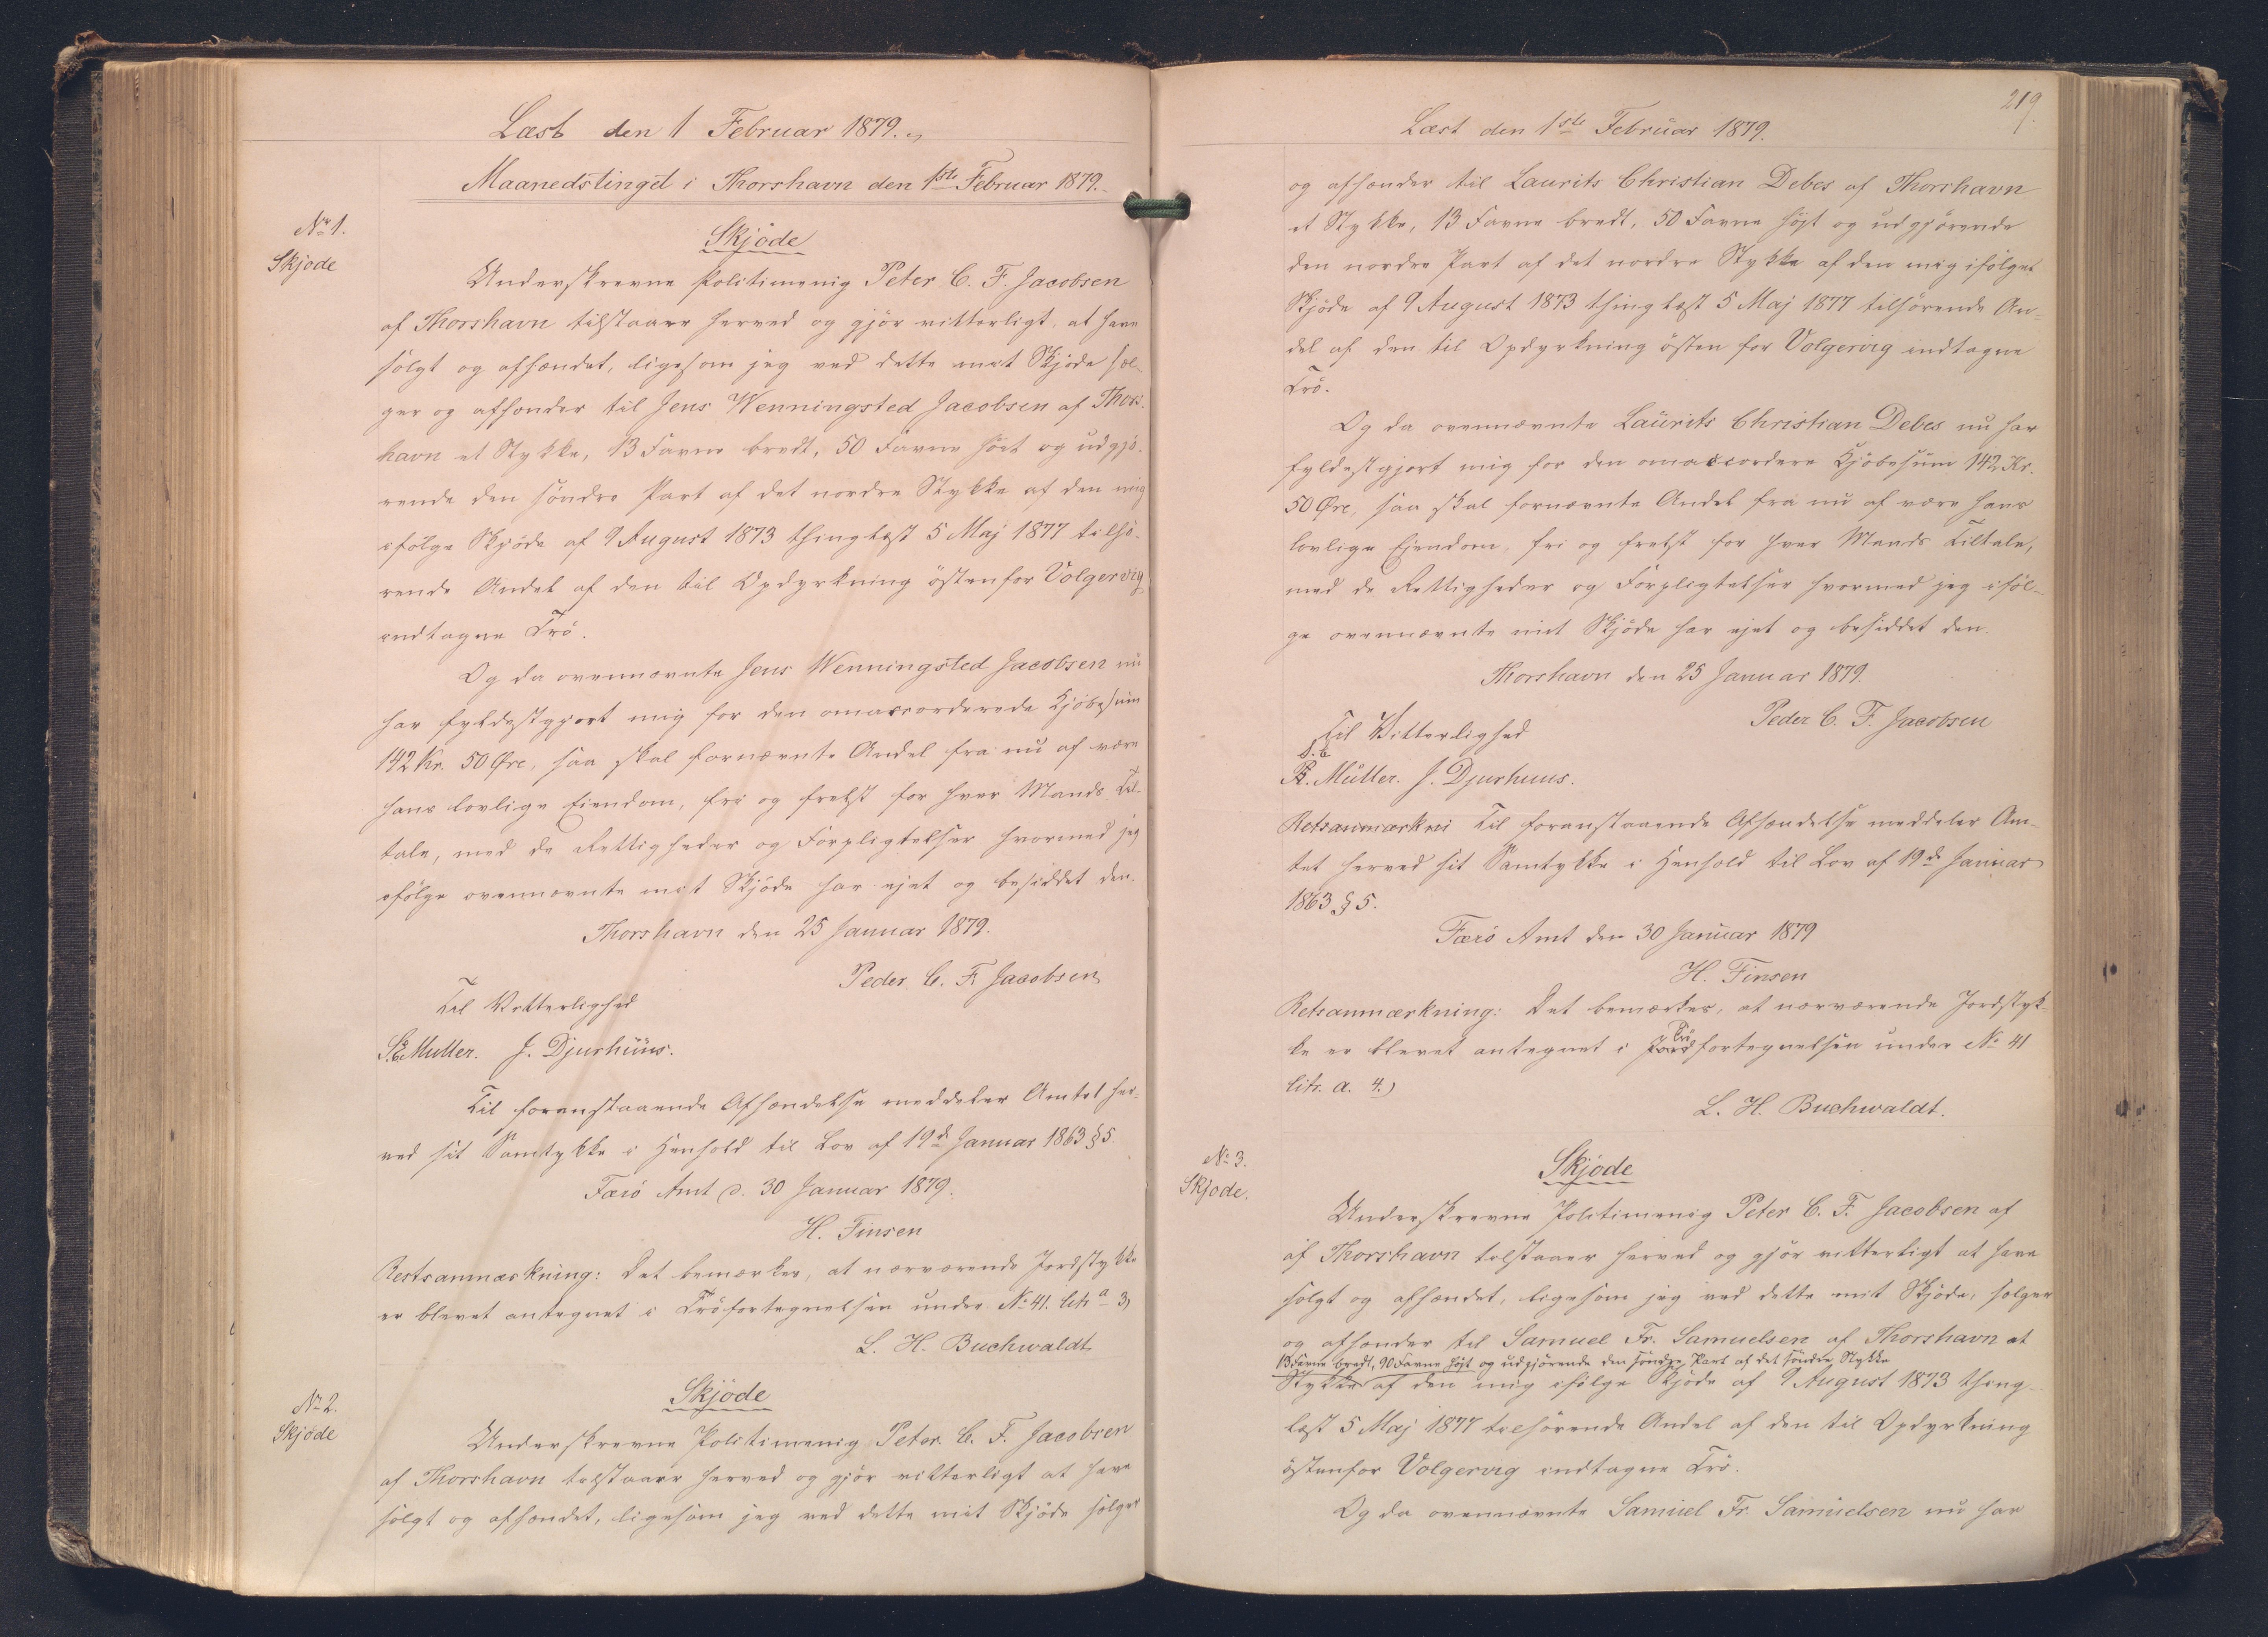 Læst den 1 Februar 1879.
Maanedstinget i Thorshavn den 1ste Februar 1879.
No 1.
Skjøde
Skjøde
Underskrevne Politimenig Peter C. F. Jacobsen
af Thorshavn tilstaaer herved og gjør vitterligt, at have
solgt og afhændet, ligesom jeg ved dette mit Skjøde sæl-
ger og afhænder til Jens Wenningsted Jacobsen af Thors-
havn et Stykke, 13 Favne bredt, 50 Favne høit og udgjø-
rende den søndre Part af det nordre Stykke af den mig
ifølge Skjøde af 9 August 1873 thinglæst 5 Maj 1877 tilhø-
rende Andel af den til Opdyrkning østenfor Volgervig
indtagne Trö.
Og da ovennævnte Jens Wenningsted Jacobsen nu
har fyldestgjort mig for den omaccorderede Kjöbesum
142 Kr. 50 Øre, saa skal fornævnte Andel fra nu af være
hans lovlige Eiendom, fri og frelst for hver Mands Til-
tale, med de Rettigheder og Forpligtelser hvormed jeg
ifølge ovennævnte mit Skjøde har ejet og besiddet den.
Thorshavn den 25 Januar 1879.
Peder C. F. Jacobsen
Til Vitterlighed
S. E. Muller. J. Djurhuus.
Til foranstaaende Afhændelse meddeler Amtet her-
ved sit Samtykke i Henhold til Lov af 19de Januar 1863 § 5.
Færö Amt d. 30 Januar 1879.
H. Finsen
Restsanmærkning: Det bemærkes, at nærværende Jordstykke
er blevet antegnet i Tröfortegnelsen under No 41. litr a 3)
L. H. Buchwaldt
No 2.
Skjøde
Skjøde
Underskrevne Politimenig Peter C. F. Jacobsen
af Thorshavn tilstaaer herved og gjør vitterligt at have
solgt og afhændet, ligesom jeg ved dette mit Skjøde sælger
219.
Læst den 1ste Februar 1879.
og afhænder til Laurits Christian Debes af Thorshavn
et Stykke, 13 Favne bredt, 50 Favne høit og udgjørende
den nordre Part af det nordre Stykke af den mig ifølge
Skjøde af 9 August 1873 thinglæst 5 Maj 1877 tilhørende An-
del af den til Opdyrkning østen for Volgervig indtagne
Trö.
Og da ovennævnte Laurits Christian Debes nu har
fyldestgjort mig for den omaccordere Kjöbesum 142 Kr.
50 Øre, saa skal fornævnte Andel fra nu af være hans
lovlige Ejendom, fri og frelst for hver Mands Tiltale,
med de Rettigheder og Forpligtelser hvormed jeg iføl-
ge ovennævnte mit Skjøde har ejet og besiddet den.
Thorshavn den 25 Januar 1879.
Peder C. F. Jacobsen
Til Vitterlighed
S. E.
Müller. J. Djurhuus.
Retsanmærkni Til foranstaaende Afhændelse meddeler Am-
tet herved sit Samtykke i Henhold til Lov af 19de Januar
1863 § 5.
Færö Amt den 30 Januar 1879
H. Finsen
Retsanmærkning: Det bemærkes, at nærværende Jordstyk-
ke er blevet antegnet i Jord Tröfortegnelsen under No 41
litr. a. 4.)
L. H. Buchwaldt.
No 3.
Skjøde.
Skjøde
Underskrevne Politimenig Peter C. F. Jacobsen af
af Thorshavn tilstaaer herved og gjør vitterligt at have
solgt og afhændet, ligesom jeg ved dette mit Skjøde, sælger
og afhænder til Samuel Fr. Samuelsen af Thorshavn et
13 Favne bredt, 90 Favne høit og udgjørende den søndre Part af det søndre Stykke
Stykke af den mig ifølge Skjøde af 9 August 1873 thing-
læst 5 Maj 1877 tilhørende Andel af den til Opdyrkning
østenfor Volgervig indtagne Trö.
Og da ovennævnte Samuel Fr. Samuelsen nu har